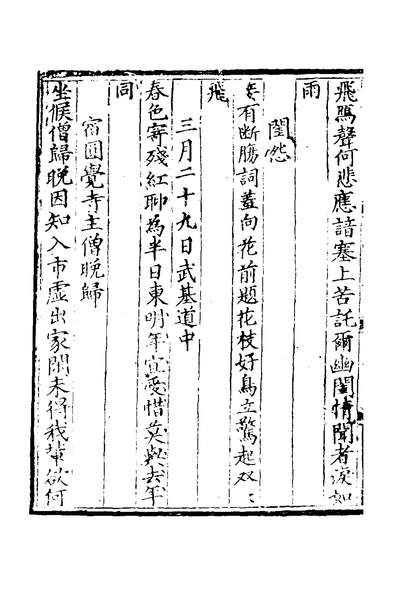 飛鴈聲何悲應諳塞上苦託爾幽閨情聞者淚如
雨
閨怨
妾有斷腸詞蓋向花前題花枝好鳥立驚起双〻
飛
三月二十九日武基道中
春色寄殘紅聊為半日東明年宜愛惜莫與去年
同
宿圓覺寺主僧晚歸
坐候僧歸晚因知入市虛出家閑未得我輩欲何